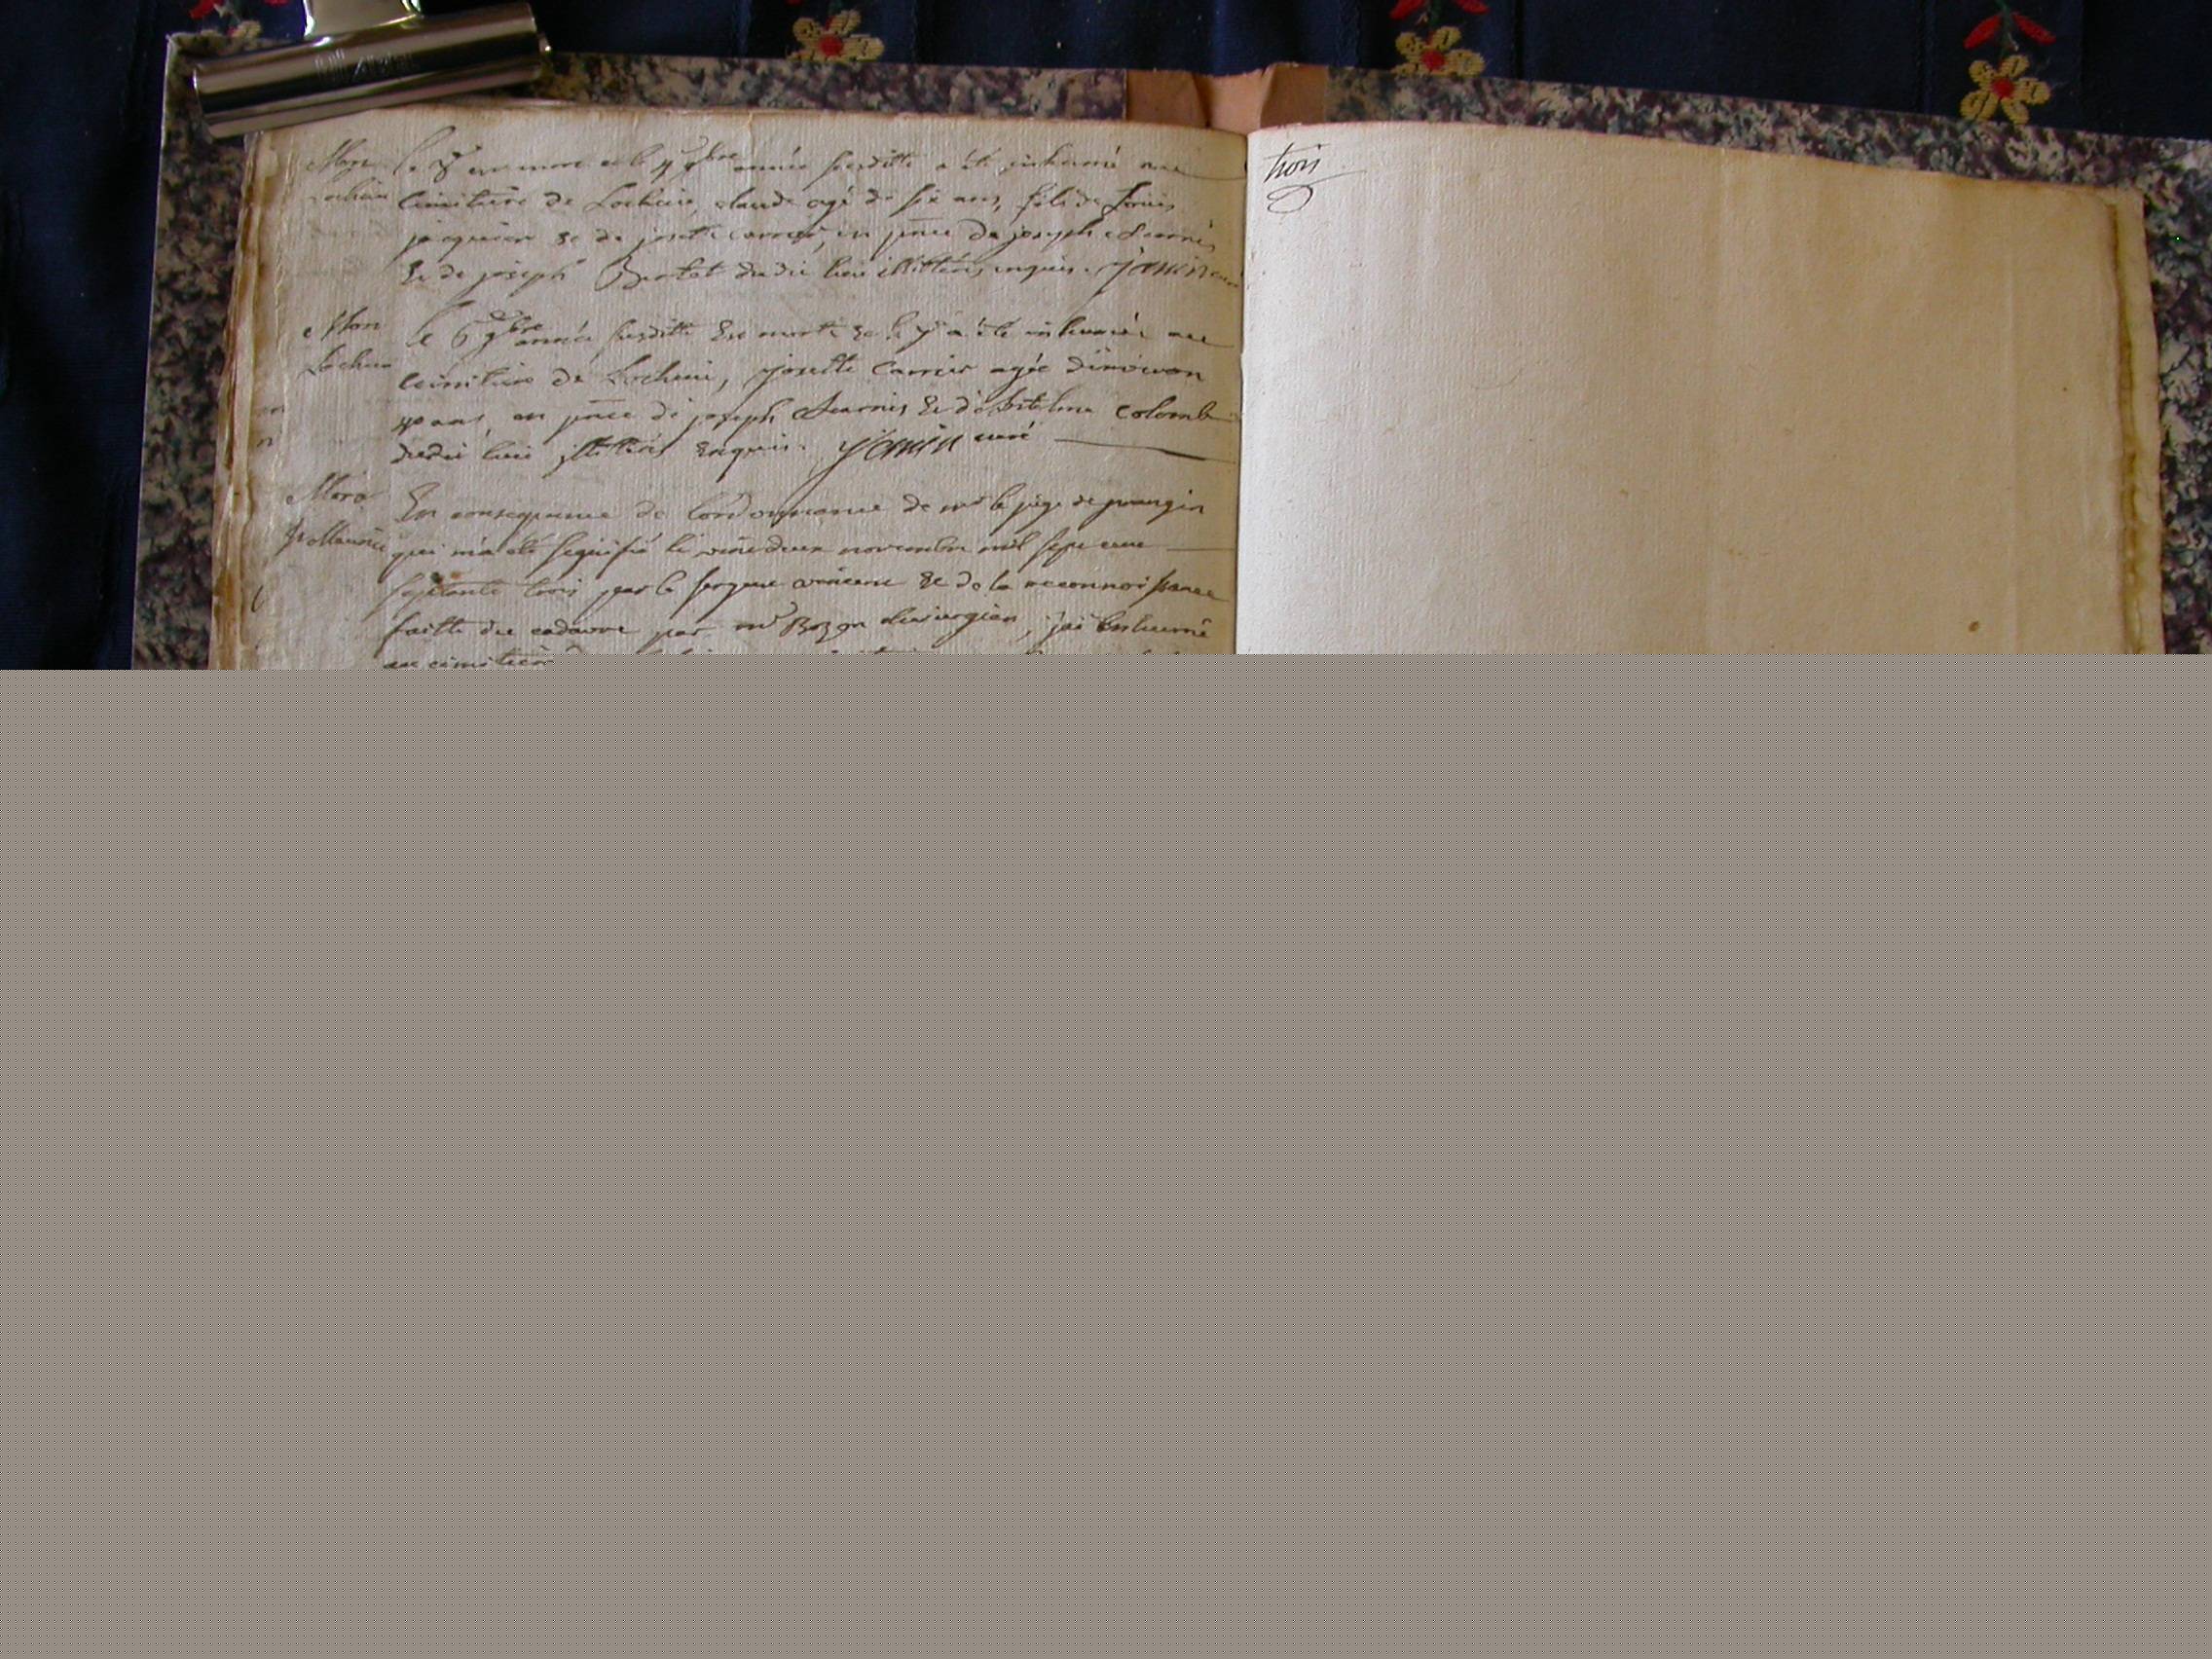 Mort le 8 est mort et le 9 9bre année susditte a été inhumé au
Lochieu cimitiere de Lochieu, claude agé de six ans, fils de Louis
jaquier & de josette carrier, en pnce de joseph
& de joseph Bertet dudit lieu illitterés enquis. Janin curé
Mort le 6 9bre année susditte Est morte & le 7 a été inhumée au
Lochieu cimitiere de Lochieu, josette Carrier agée d'environ
ans, en pnce de joseph & d'Antelme colomb
dudit lieu illitterés Enquis. Janin curé
Mort En consequence de l'ordonnance de mr le juge de
qui m'a été signifié le vint deux novembre mil sept cent
septante trois par le sergent vincent & de la reconnoissance
faitte du cadavre par mr Bozon chirurgien, j'ai Enhumé
au cimitiere
trois